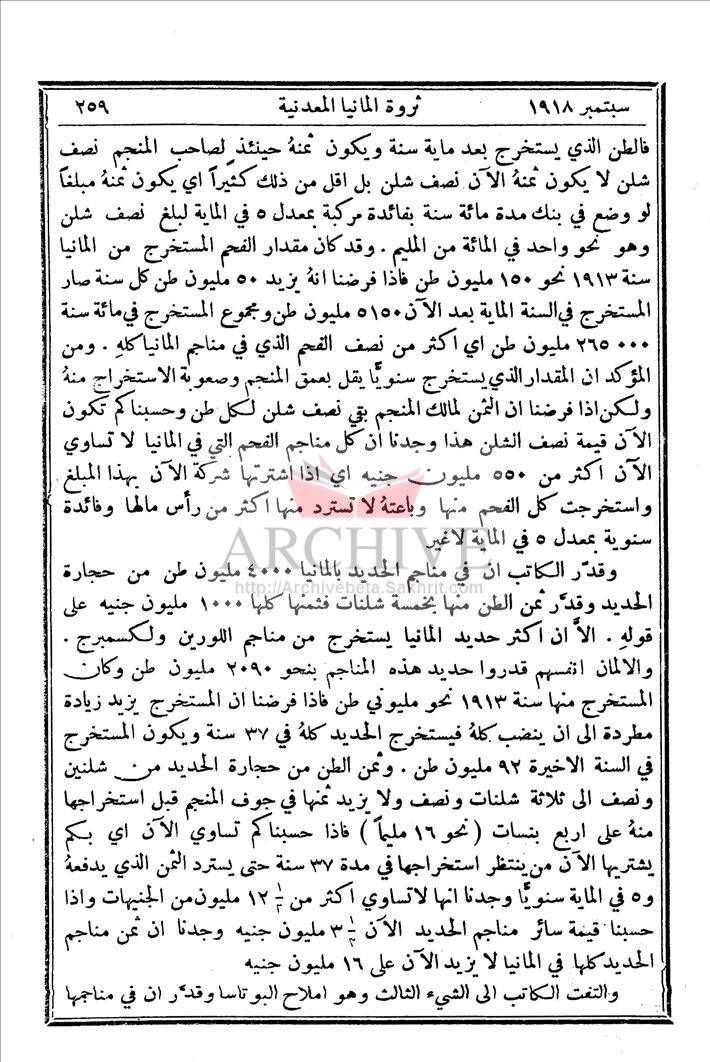 سبتمبر ١٩١٨ ثروة المانيا المعدنية ٢٥٩
فالطن الذي يستخرج بعد ماية سنة ويكون ثمنهُ حينئذٍ لصاحب المنجم نصف
شلن لا يكون ثمنهُ الآن نصف شلن بل اقل من ذلك كثيراً اي يكون ثمنهُ مبلغاً
لو وضع في بنك مدة مائة سنة بفائدة مركبة بمعدل ٥ في الماية لبلغ نصف شلن
وهو نحو واحد في المائة من المليم . وقد كان مقدار الفحم المستخرج من المانيا
سنة ١٩١٣ نحو ١٥٠ مليون طن فاذا فرضنا انهُ يزيد ٥٠ مليون طن كل سنة صار
المستخرج في السنة الماية بعد الآن ٥١٥٠ مليون طن ومجموع المستخرج في مائة سنة
٢٦٥٠٠٠ مليون طن اي اكثر من نصف الفحم الذي في مناجم المانيا كلهِ . ومن
المؤكد ان المقدار الذي يستخرج سنويًّا يقل بعمق المنجم وصعوبة الاستخراج منهُ
ولكن اذا فرضنا ان الثمن لمالك المنجم بقي نصف شلن لكل طن وحسبنا كم تكون
الآن قيمة نصف الشلن هذا وجدنا ان كل مناجم الفحم التي في المانيا لا تساوي
الآن اكثر من ٥٥٠ مليون جنيه اي اذا اشترتها شركة الآن بهذا المبلغ
واستخرجت كل الفحم منها وباعتهُ لا تسترد منها اكثر من رأس مالها وفائدة
سنوية بمعدل ٥ في الماية لاغير
ARCHIVE
وقدَّر الكاتب ان في مناجم الحديد بالمانيا ٤٠٠٠ مليون طن من حجارة
http://Archivebeta.Sakhrit.com
الحديد وقدَّر ثمن الطن منها بخمسة شلنات فثمنها كلها ١٠٠٠ مليون جنيه على
قولهِ . الاَّ ان اكثر حديد المانيا يستخرج من مناجم اللورين ولكسمبرج .
والالمان انفسهم قدروا حديد هذه المناجم بنحو ٢٠٩٠ مليون طن وكان
المستخرج منها سنة ١٩١٣ نحو مليوني طن فاذا فرضنا ان المستخرج يزيد زيادة
مطردة الى ان ينضب كلهُ فيستخرج الحديد كلهُ في ٣٧ سنة ويكون المستخرج
في السنة الاخيرة ٩٢ مليون طن . وثمن الطن من حجارة الحديد من شلنين
ونصف الى ثلاثة شلنات ونصف ولا يزيد ثمنها في جوف المنجم قبل استخراجها
منهُ على اربع بنسات ( نحو ١٦ مليماً ) فاذا حسبنا كم تساوي الآن اي بكم
يشتريها الآن من ينتظر استخراجها في مدة ٣٧ سنة حتى يسترد الثمن الذي يدفعهُ
و٥ في الماية سنويًّا وجدنا انها لاتساوي اكثر من ١/٢ ١٢ مليون من الجنيهات واذا
حسبنا قيمة سائر مناجم الحديد الآن ١/٢ ٣ مليون جنيه وجدنا ان ثمن مناجم
الحديد كلها في المانيا لا يزيد الآن على ١٦ مليون جنيه
والتفت الكاتب الى الشيء الثالث وهو املاح البوتاسا وقدَّر ان في مناجمها